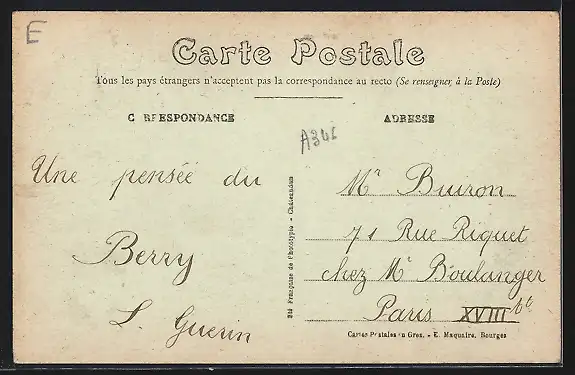 E
Carte Postale
Tous les pays étrangers n'acceptent pas la correspondance au recto (Se renseigner à la Poste)
C RRESPONDANCE
ADRESSE
A346
Une pensée du
Berry
L. Guerin
Sté Française de Phototypie - Châteaudun
Mr Buiron
71 Rue Riquet
chez Mr Boulanger
Paris XVIII
Cartes Postales en Gros. - E. Maquaire, Bourges